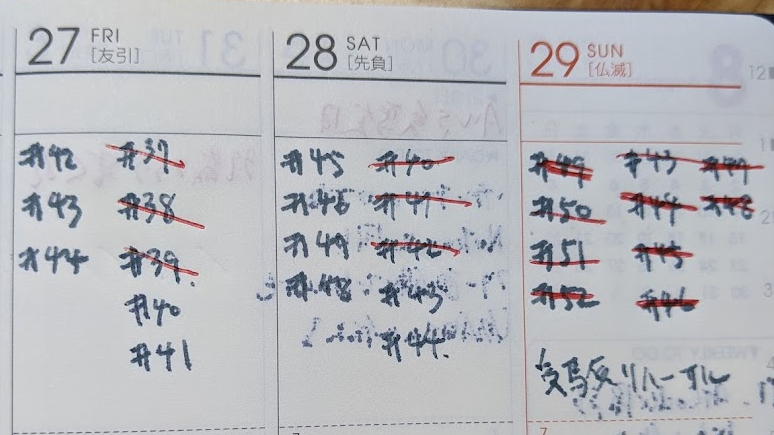 27 FRI
[友引]
#42 #37
#43 #38
#44 #39
#40
#41
28 SAT
[先負]
#45 #40
#46 #41
#47 #42
#48 #43
#44
29 SUN
[仏滅]
#49 #43 #47
#50 #44 #48
#51 #45
#52 #46
リハーサル
7
12
1
2
3
4